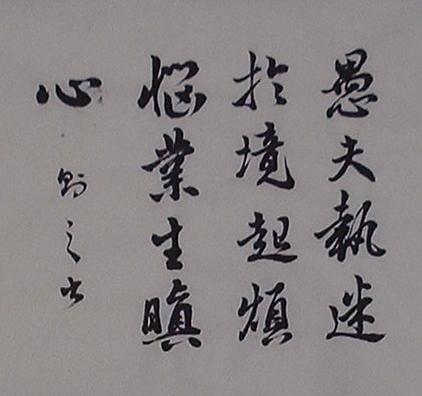 愚夫執迷
於境起煩
惱業生瞋
心 之书